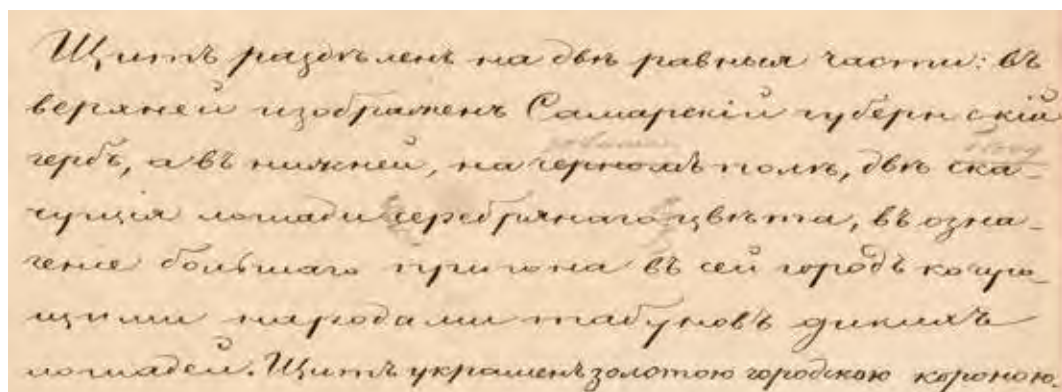 Щитъ раздѣленъ на двѣ равныя части: въ
верхней изображенъ Самарскій губернскій
гербъ, а въ нижней, на черномъ полѣ, двѣ ска-
чущія лошади серебрянаго цвѣта, въ озна-
ченіе большаго пригона въ сей городъ кочую-
щими народами табуновъ дикихъ
лошадей. Щитъ украшенъ золотою городскою короною